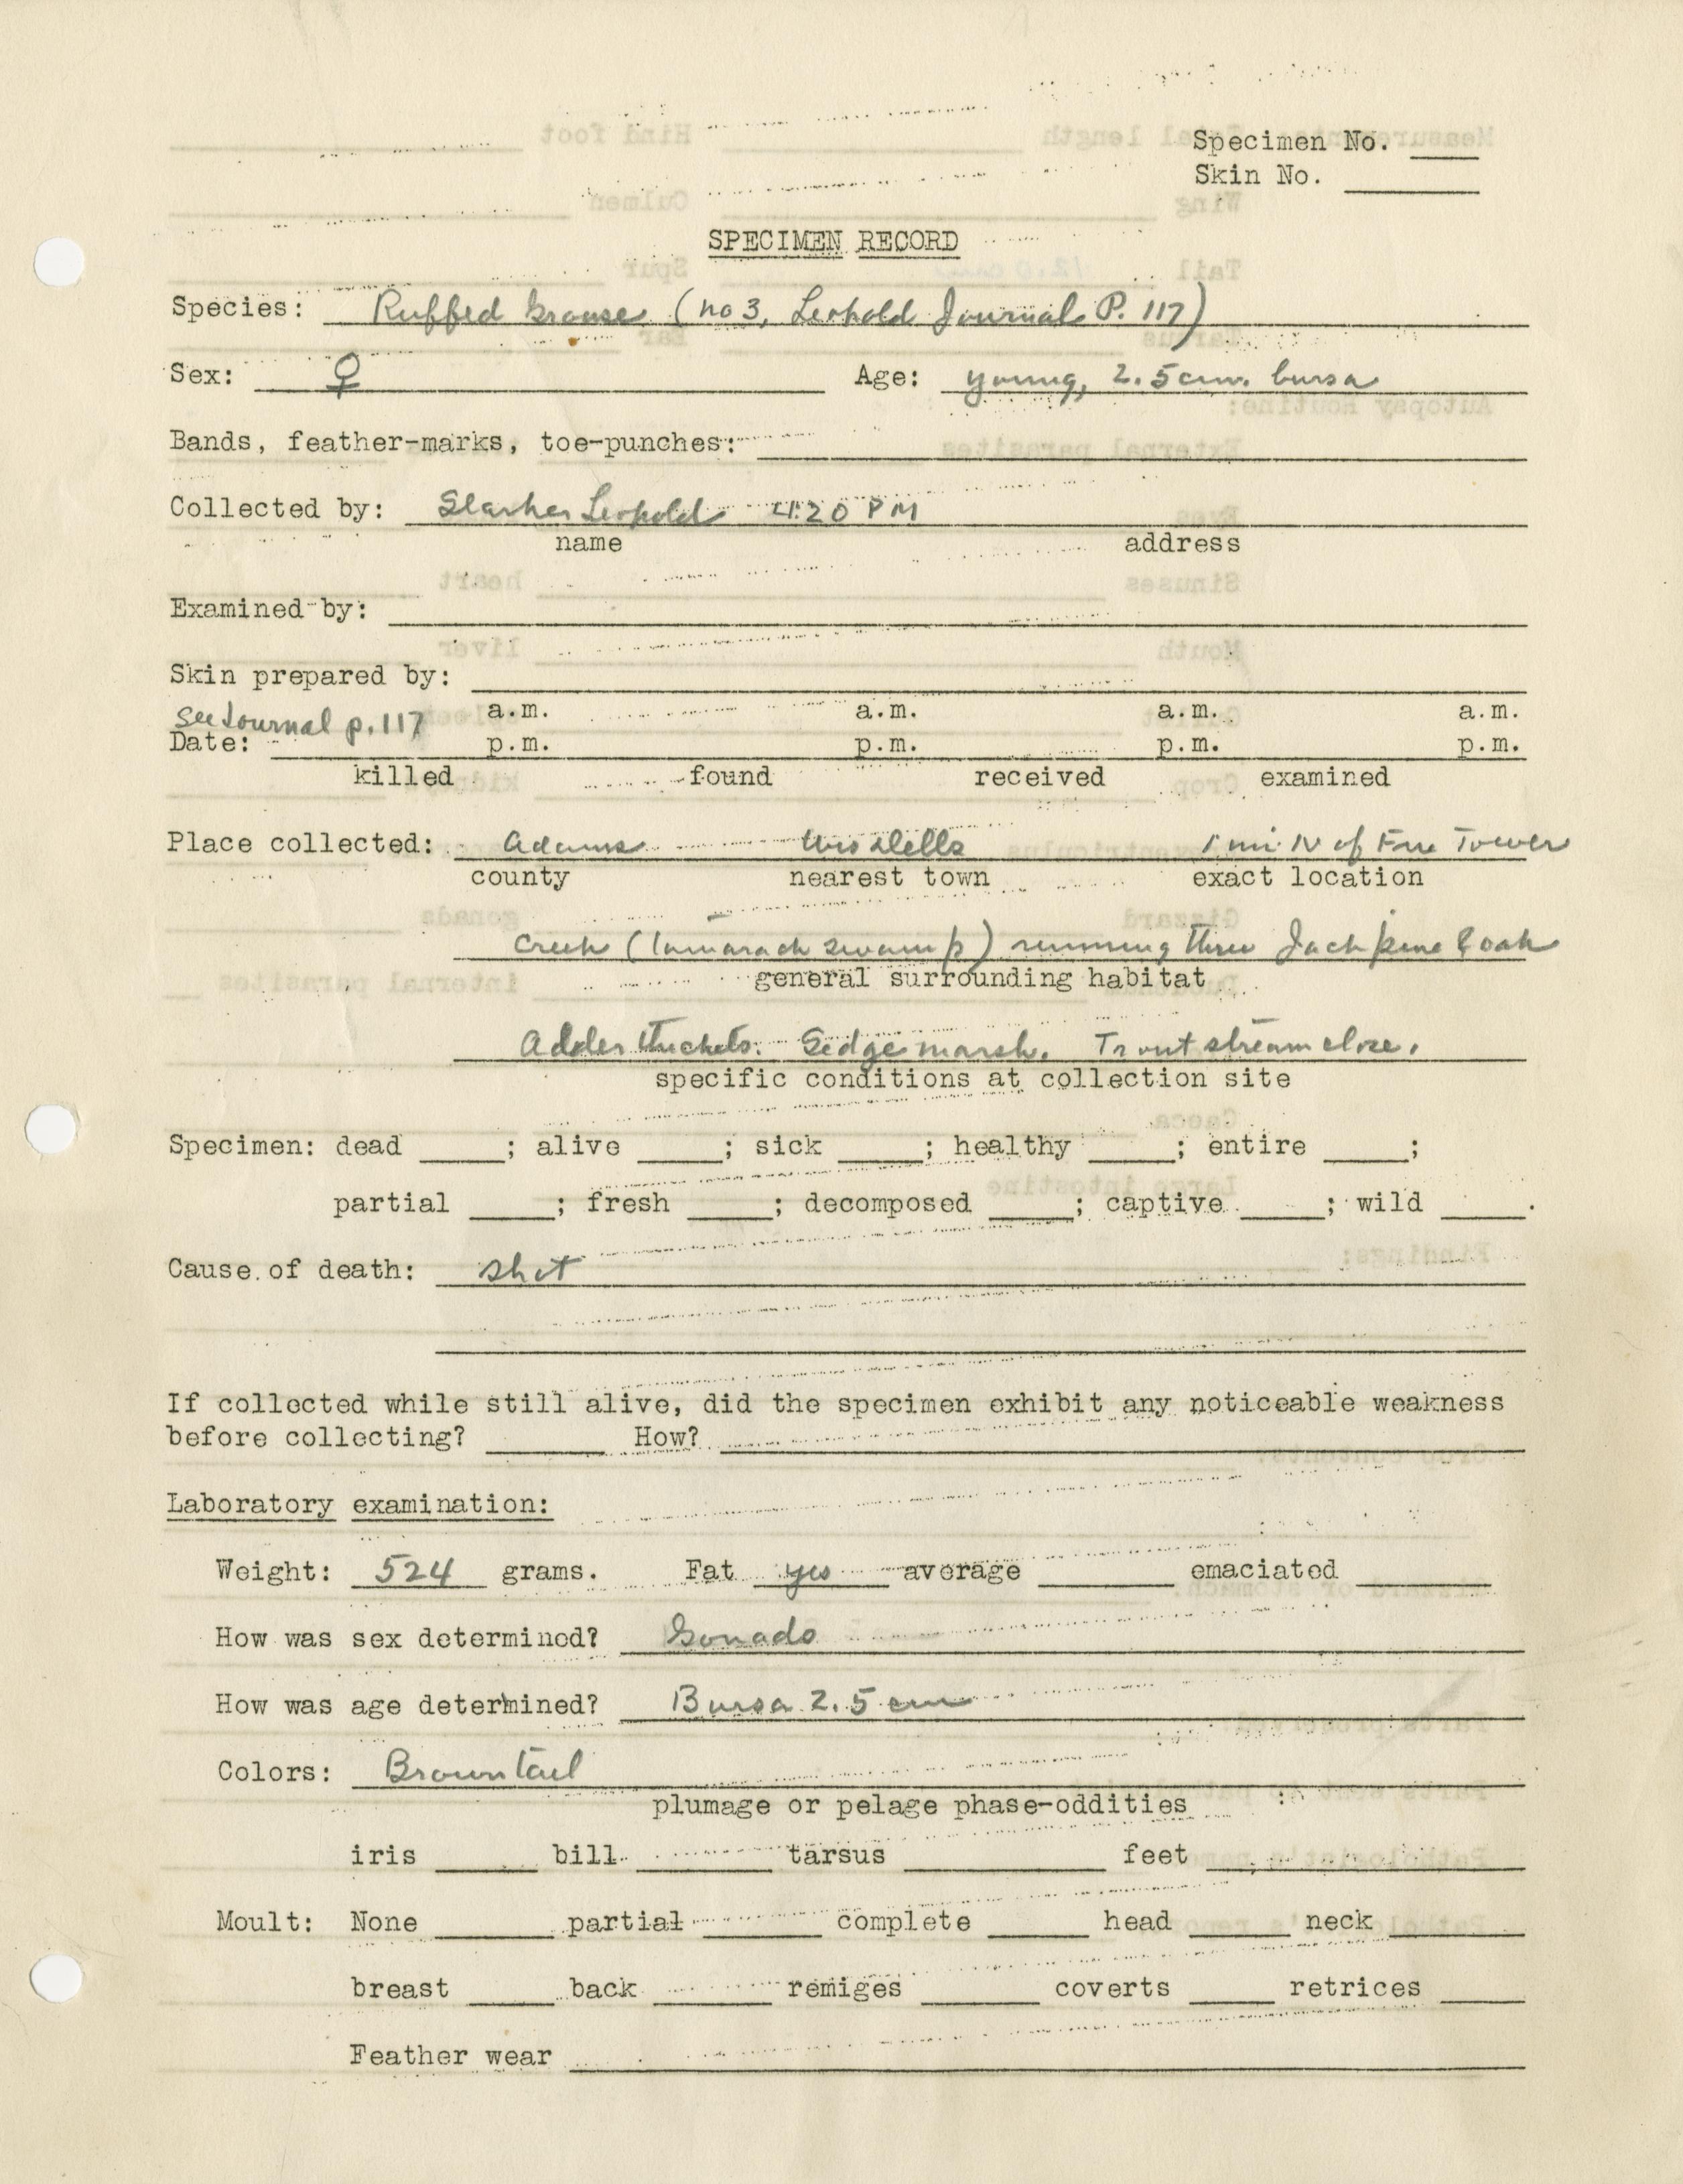 Specimen No. ____
Skin No. ________
SPECIMEN RECORD
Species: Ruffed Grouse (no 3, Leopold Journal P. 117)
Sex: ♀ Age: young, 2.5 cm. bursa
Bands, feather-marks, toe-punches:
Collected by: Starker Leopold 4:20 PM
name address
Examined by:
Skin prepared by:
See Journal p. 117 a.m. a.m. a.m. a.m.
Date: p.m. p.m. p.m. p.m.
killed found received examined
Place collected: Adams Wis Dells 1 mi. N of Fire Tower
county nearest town exact location
Creek (tamarack swamp) running thru Jack pine & oak
general surrounding habitat
Alder thickets. Sedge marsh. Trout stream close.
specific conditions at collection site
Specimen: dead ____; alive ____; sick ____; healthy ____; entire ____;
partial ____; fresh ____; decomposed ____; captive ____; wild ____.
Cause of death: shot
If collected while still alive, did the specimen exhibit any noticeable weakness
before collecting? ______ How?
Laboratory examination:
Weight: 524 grams. Fat yes average ______ emaciated ______
How was sex determined? Gonads
How was age determined? Bursa 2.5 cm
Colors: Brown tail
plumage or pelage phase-oddities
iris ____ bill ____ tarsus ____ feet ____
Moult: None ____ partial ____ complete ____ head ____ neck ____
breast ____ back ____ remiges ____ coverts ____ retrices ____
Feather wear